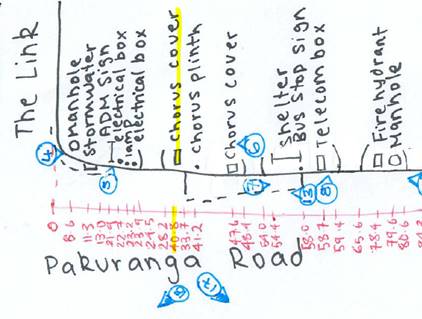 The Link
manhole
Stormwater
ADM sign
electrical box
lamp
electrical box
chorus cover
chorus plinth
chorus cover
Shelter
Bus Stop sign
Telecom box
Fire hydrant
Manhole
4
5
6
7
13
8
0
8.6
11.3
13.0
21.9
22.7
23.2
23.9
24.5
28.2
40.8
33.7
41.2
47.6
48.4
54.0
54.4
58.0
58.7
59.4
65.6
78.4
79.6
80.6
Pakuranga Road